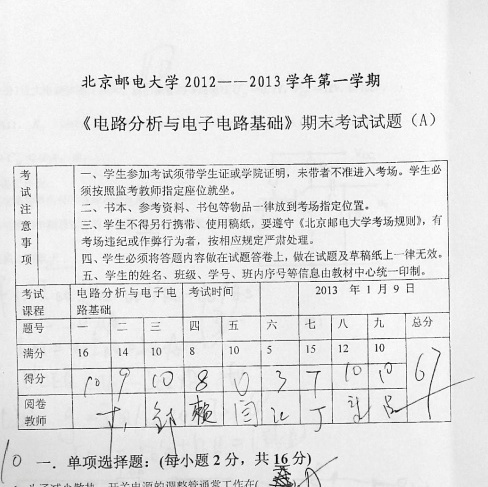 北京邮电大学2012——2013学年第一学期
《电路分析与电子电路基础》期末考试试题（A）
考试注意事项
一、学生参加考试须带学生证或学院证明，未带者不准进入考场。学生必
须按照监考教师指定座位就坐。
二、书本、参考资料、书包等物品一律放到考场指定位置。
三、学生不得另行携带、使用稿纸，要遵守《北京邮电大学考场规则》，有
考场违纪或作弊行为者，按相应规定严肃处理。
四、学生必须将答题内容做在试题答卷上，做在试题及草稿纸上一律无效。
五、学生的姓名、班级、学号、班内序号等信息由教材中心统一印制。
考试课程 电路分析与电子电路基础 考试时间 2013 年 1 月 9 日
题号 一 二 三 四 五 六 七 八 九 总分
满分 16 14 10 8 10 5 15 12 10
得分 10 9 10 8 0 3 7 10 10 67
阅卷教师 赖 闫 丁
10 一．单项选择题：(每小题 2 分，共 16 分)
开关电源的调整管通常工作在(